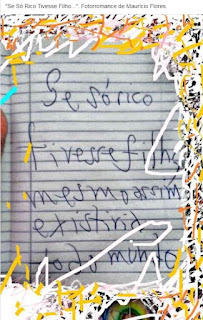 "Se Só Rico Tivesse Filho...". Fotorromance de Maurício Flores.
Se só rico
tivesse filho
mesmo assim
existiria
todo mundo